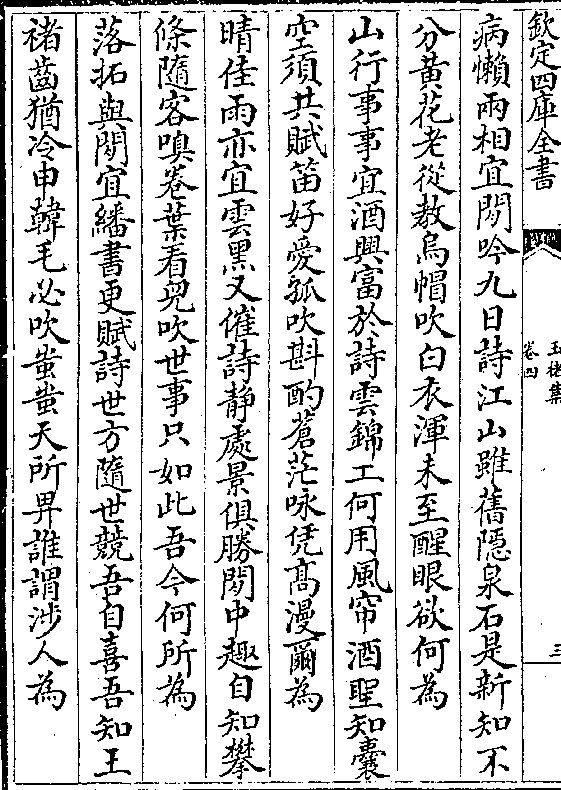 欽定四庫全書
玉楮集
卷四
三
病懶兩相宜閒吟九日詩江山雖舊隱泉石是新知不
分黄花老從教烏帽吹白衣渾未至醒眼欲何為
山行事事宜酒興富於詩雲錦工何用風帘酒聖知囊
空須共賦笛好愛孤吹斟酌蒼茫咏凭髙漫爾為
晴佳雨亦宜雲黒又催詩静處景俱勝閒中趣自知攀
條隨客嗅巻葉看兒吹世事只如此吾今何所為
落拓與閒宜繙書更賦詩世方隨世競吾自喜吾知王
褚齒猶冷申韓毛必吹蚩蚩天所畀誰謂涉人為